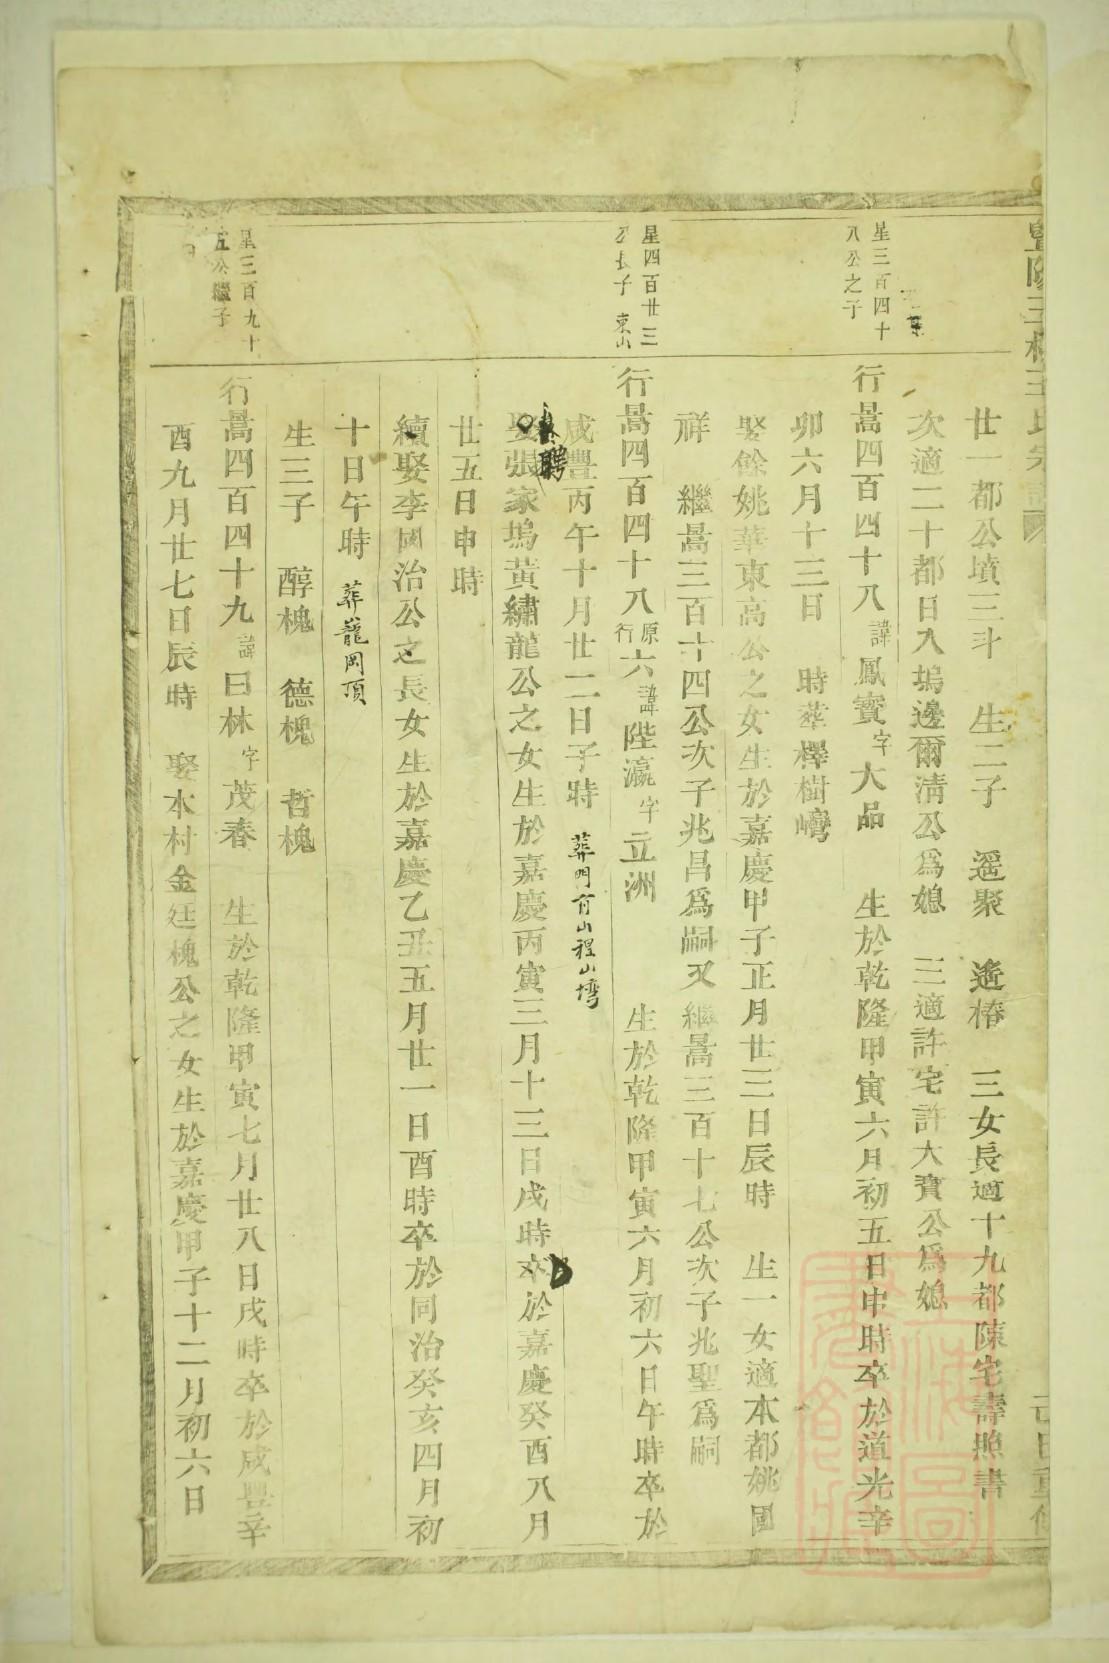 己巳重修
廿都公墳三斗 生二子 遥聚 遥椿 三女長適十九都陳宅壽照書
次適二十都日入塢邊爾清公爲媳 三適許宅許大賓公爲媳
星三百四十
八公之子
行暠四百四十八諱鳳寳字大品 生於乾隆甲寅六月初五日申時卒於道光辛
卯六月十三日 時葬檡樹灣
娶餘姚華東高公之女生於嘉慶甲子正月廿三日辰時 生一女適本都姚國
祥 繼暠三百十四公次子兆昌爲嗣又繼暠三百十七公次子兆聖爲嗣
星四百廿三
公長子 東山
行暠四百四十八原行六諱陛瀛字立洲 生於乾隆甲寅六月初六日午時卒於
咸豐丙午十月廿二日子時 葬門前山程山塆
娶張家塢黃繡龍公之女生於嘉慶丙寅三月十三日戌時卒於嘉慶癸酉八月
聘
廿五日申時
續娶李國治公之長女生於嘉慶乙丑五月廿一日酉時卒於同治癸亥四月初
十日午時 葬龍岡頂
生三子 醇槐 德槐 哲槐
星三百九十
五公繼子
行暠四百四十九諱曰林字茂春 生於乾隆甲寅七月廿八日戌時卒於咸豐辛
酉九月廿七日辰時 娶本村金廷槐公之女生於嘉慶甲子十二月初六日